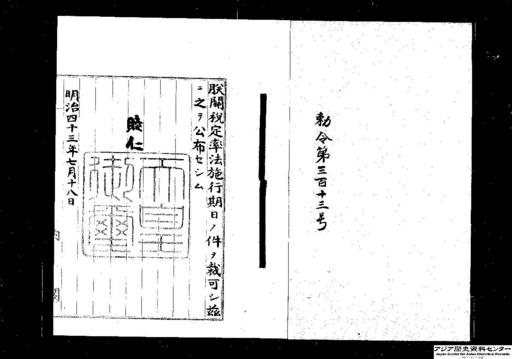 勅令第三百十三号
朕関税定率法施行期日ノ件ヲ裁可シ茲
ニ之ヲ公布セシム
睦仁
天皇御璽
明治四十三年七月十八日
内閣
アジア歴史資料センター
Japan Center for Asian Historical Records